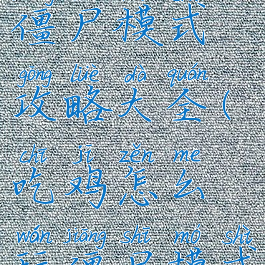 僵尸模式
gōng lüè dà quán
攻略大全(
chī jī zěn me
吃鸡怎么
wán jiāng shī mó shì
玩僵尸模式